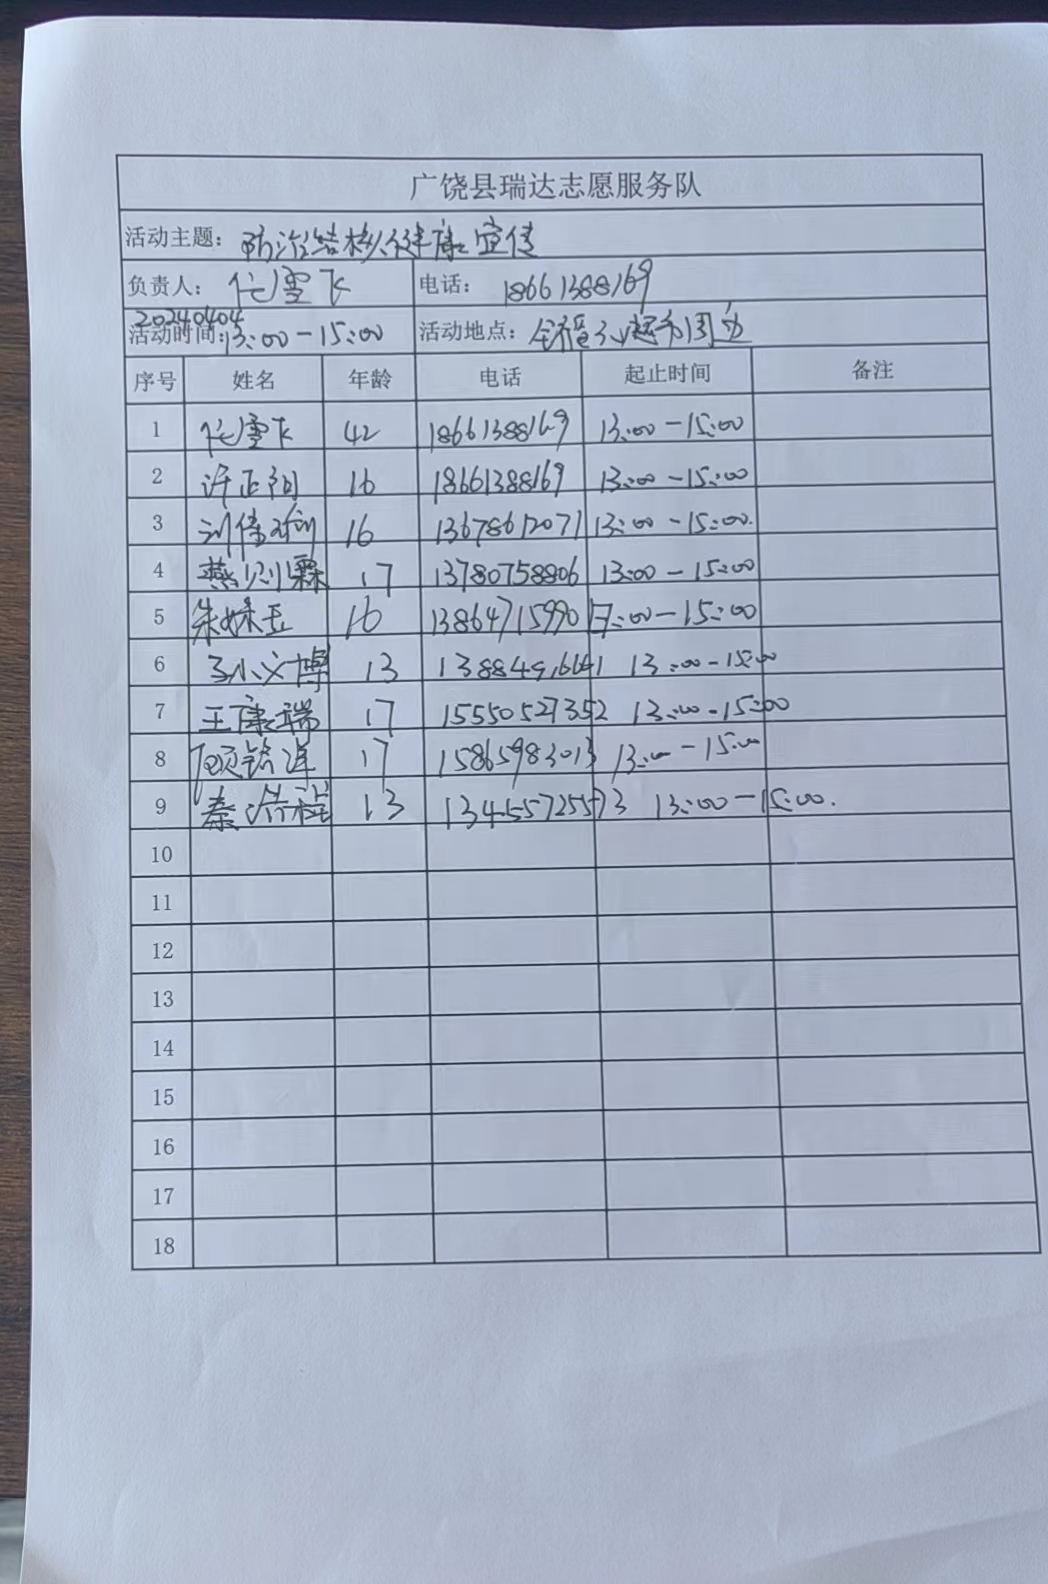 广饶县瑞达志愿服务队
活动主题: 防治结核健康宣传
负责人: 代雪飞 电话: 18661388169
20240404
活动时间: 13:00-15:00 活动地点: 周边
序号 姓名 年龄 电话 起止时间 备注
1 代雪飞 42 18661388169 13:00-15:00
2 许正 16 18661388169 13:00-15:00
3 刘 16 13678612071 13:00-15:00.
4 燕 霖 17 13780758806 13:00-15:00
5 朱姝玉 16 13864715990 13:00-15:00
6 文博 13 13:00-15:00
7 王康瑞 17 15550527352 13:00-15:00
8 顾铭洋 17 15865983013 13:00-15:00
9 秦浩程 13 13455725573 13:00-15:00.
10
11
12
13
14
15
16
17
18